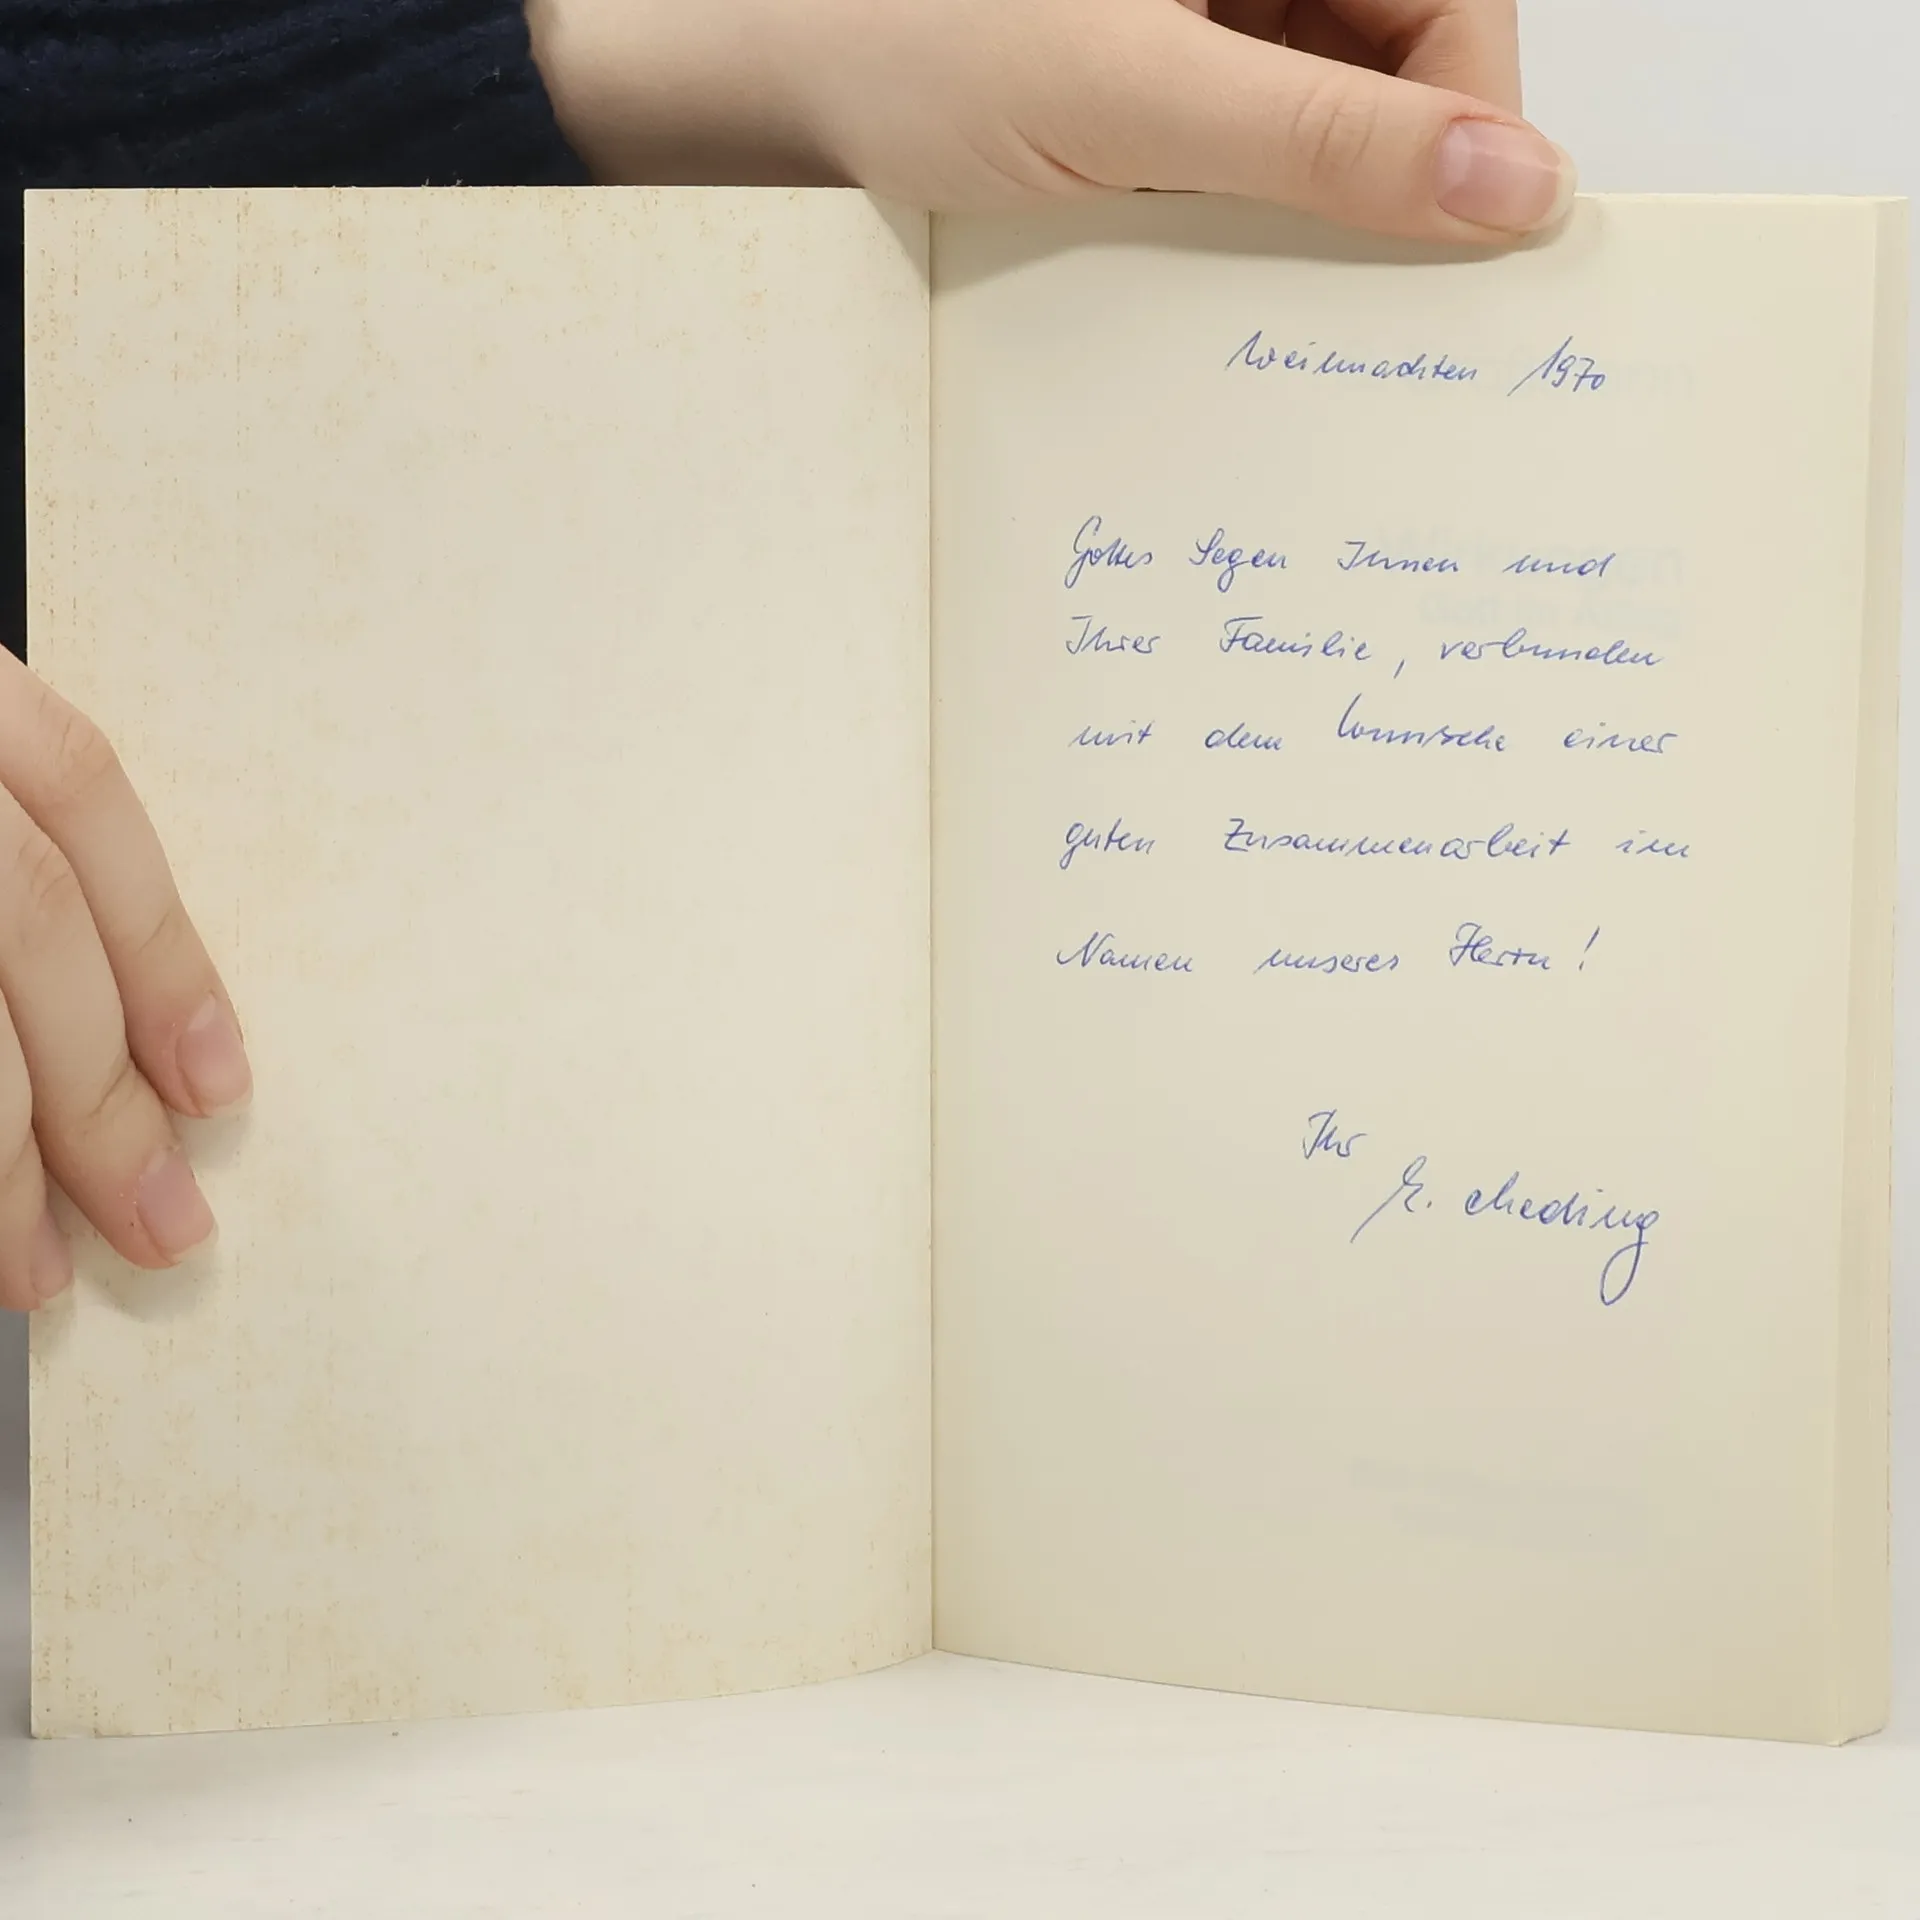 Weihnachten 1970
Gottes Segen Ihnen und
Ihrer Familie, verbunden
mit dem Wunsche einer
guten Zusammenarbeit im
Namen unseres Herrn!
Ihr
E. Meding